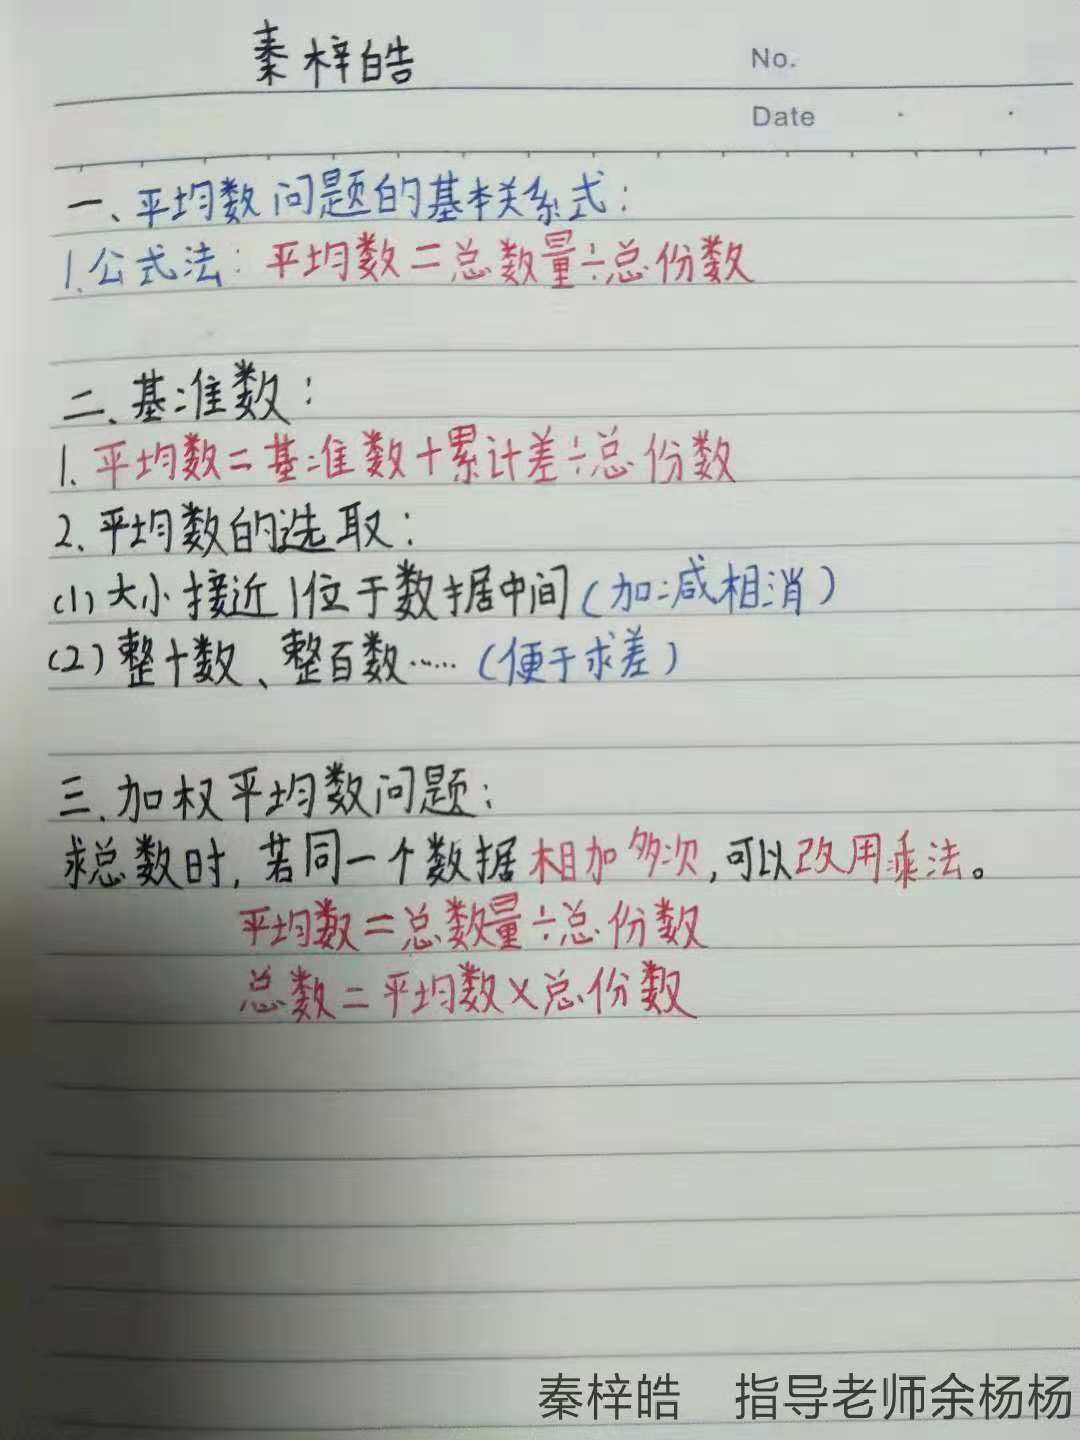 秦梓皓
No.
Date
一、平均数问题的基本关系式:
1.公式法: 平均数=总数量÷总份数
二、基准数:
1.平均数=基准数+累计差÷总份数
2.平均数的选取:
(1)大小接近/位于数据中间(加减相消)
(2)整十数、整百数……(便于求差)
三、加权平均数问题:
求总数时,若同一个数据相加多次,可以改用乘法。
平均数=总数量÷总份数
总数=平均数×总份数
秦梓皓 指导老师余杨杨